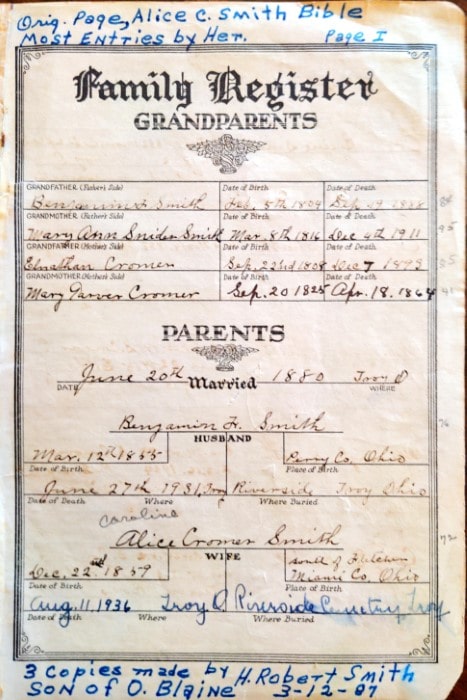 Orig. Page, Alice C. Smith Bible
Most Entries by Her. Page I
Family Register
GRANDPARENTS
GRANDFATHER (Father's Side) Date of Birth Date of Death
Smith Feb. 5th 1809 Sep 19
GRANDMOTHER (Father's Side) Date of Birth Date of Death
Mary Ann Snider Smith Mar. 8th 1816 Dec 4th 1911 95
GRANDFATHER (Mother's Side) Date of Birth Date of Death
Elnathan Cromer Sep. 22nd 1808 Dec 7 1893 85
GRANDMOTHER (Mother's Side) Date of Birth Date of Death
Mary Garver Cromer Sep. 20 1825 Apr. 18. 1864
PARENTS
June 20th Married 1880 Troy O
DATE WHERE
Benjamin H. Smith 76
HUSBAND
Mar. 12th 1855 Perry Co. Ohio
Date of Birth Place of Birth
June 27th 1931, Troy Riverside Troy Ohio
Date of Death Where Where Buried
Caroline
Alice Cromer Smith 72
WIFE
south of Fletcher
Dec. 22nd 1859 Miami Co. Ohio
Date of Birth Place of Birth
Aug. 11, 1936 Troy O Riverside Cemetry, Troy
Date of Death Where Where Buried
3 Copies made by H. Robert Smith
Son of O. Blaine 3-12-91